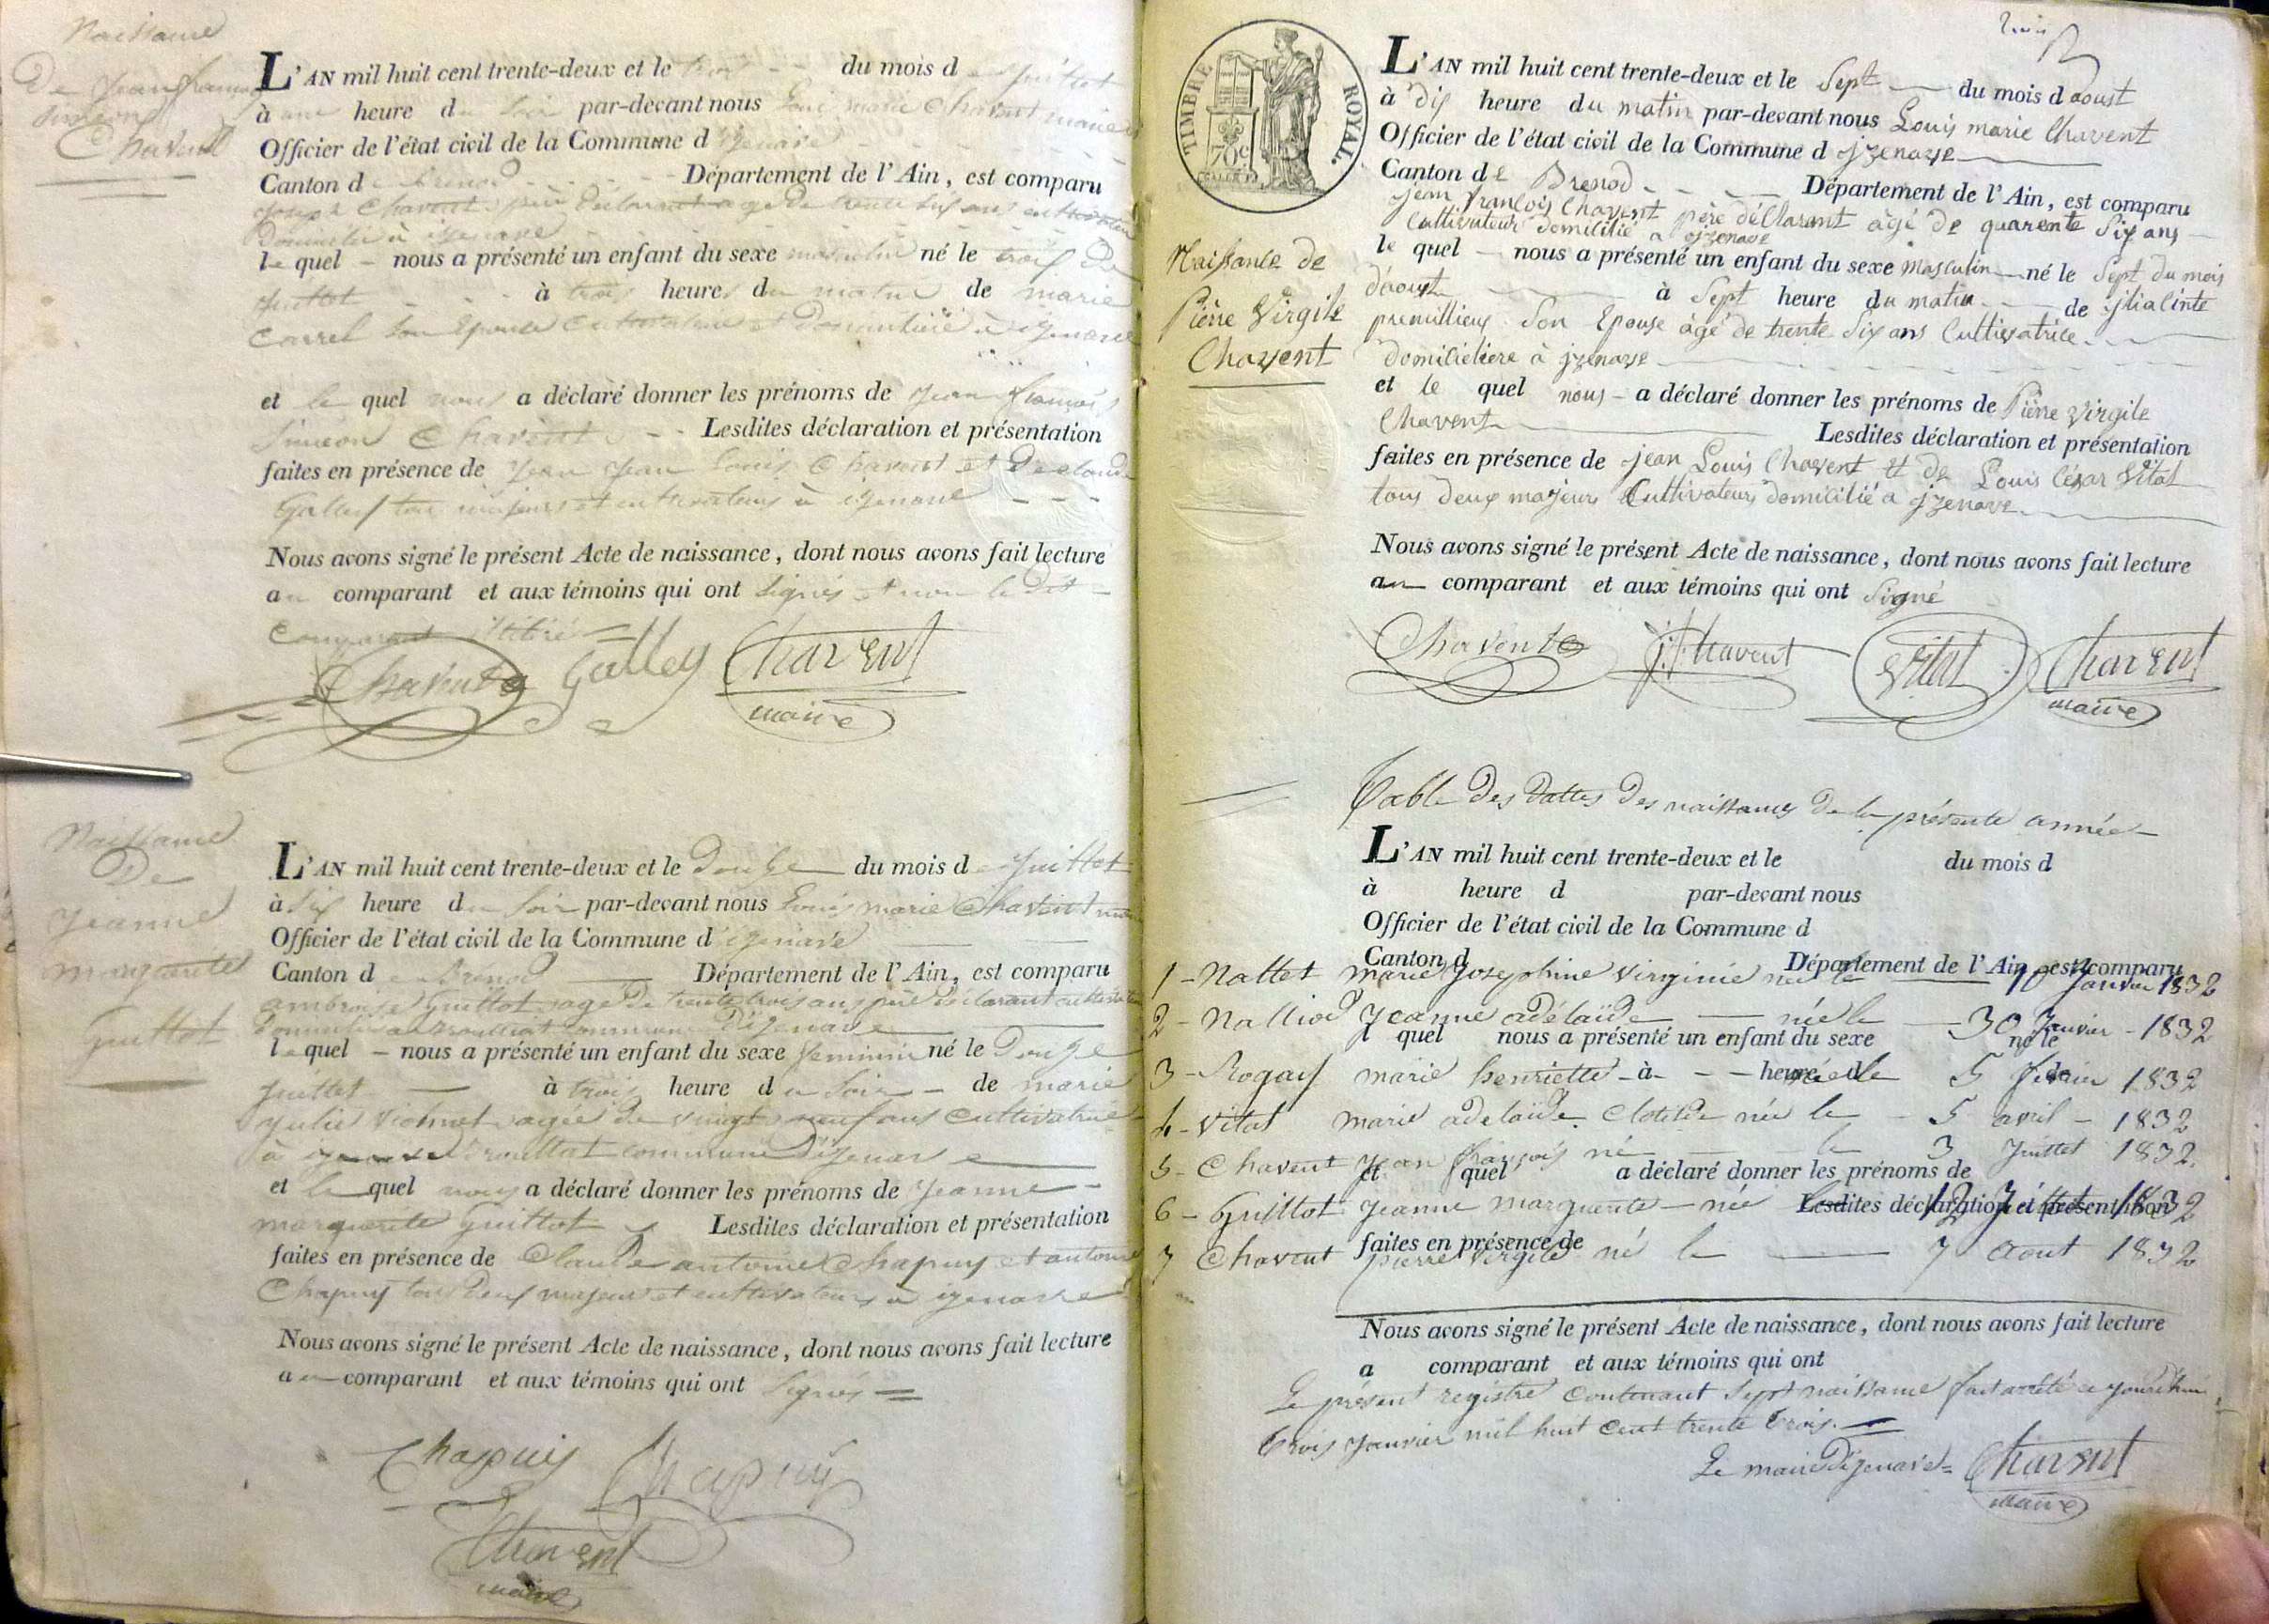 Naissance
De Jean françois
Siméon
Chavent
L'AN mil huit cent trente-deux et le trois du mois de juillet
à une heure du soir par-devant nous Louis marie Chavent maire
Officier de l'état civil de la Commune d'izenave
Canton de Brenod Département de l'Ain, est comparu
joseph Chavent père déclarant agé de trente six ans cultivateur
Domicilié à izenave
lequel nous a présenté un enfant du sexe masculin né le trois de
juillet à trois heures du matin de marie
Carrel son Epouse cultivatrice et Domiciliée à izenave
et le quel nous a déclaré donner les prénoms de jean françois
Siméon Chavent Lesdites déclaration et présentation
faites en présence de jean Louis Chavent et De claude
Galley tous majeurs et cultivateurs à izenave
Nous avons signé le présent Acte de naissance, dont nous avons fait lecture
au comparant et aux témoins qui ont signés et non le Dit
Comparant
Chavent Galley Chavent
maire
Naissance
De
jeanne
marguerite
Guittot
L'AN mil huit cent trente-deux et le Douze du mois de juillet
à six heure du soir par-devant nous Louis marie Chavent maire
Officier de l'état civil de la Commune d'izenave
Canton de Brenod Département de l'Ain, est comparu
ambroise Guittot agé De trente trois ans père déclarant cultivateur
commune D'izenave
lequel nous a présenté un enfant du sexe feminin né le Douze
juillet à trois heure du soir de marie
julie agée de vingt neuf ans Cultivatrice
à commune D'izenave
et le quel nous a déclaré donner les prénoms de jeanne
marguerite Guittot Lesdites déclaration et présentation
faites en présence de Claude antoine Chapuy et antoine
Chapuy tous Deux majeurs et cultivateurs à izenave
Nous avons signé le présent Acte de naissance, dont nous avons fait lecture
au comparant et aux témoins qui ont signés
Chapuis Chapuy
Chavent
maire
TIMBRE ROYAL.
70c
L'AN mil huit cent trente-deux et le Sept du mois d aoust
à dix heure du matin par-devant nous Louis marie Chavent
Officier de l'état civil de la Commune d jzenave
Canton de Brenod Département de l'Ain, est comparu
jean françois Chavent père déClarant àgé de quarente six ans
Cultivateur domicilié a jzenave
le quel nous a présenté un enfant du sexe masculin né le Sept du mois
d'aoust à Sept heure du matin de jtialinte
premillieux son Epouse àgé de trente Six ans Cultivatrice
domicilieiere à jzenave
et le quel nous a déclaré donner les prénoms de Piérre Virgile
Chavent Lesdites déclaration et présentation
faites en présence de jean Louis Chavent et de Louis César Vitat
tous deux majeurs Cultivateurs domicilié a jzenave
Nous avons signé le présent Acte de naissance, dont nous avons fait lecture
au comparant et aux témoins qui ont signé
Naissance de
Piérre Virgile
Chavent
Chavent j.f. Chavent Vitat Chavent
maire
Table Des Dattes Des naissances De la présente année
L'AN mil huit cent trente-deux et le du mois d
à heure d par-devant nous
Officier de l'état civil de la Commune d
Canton d Département de l'Ain, est comparu
1 - Nattet marie josephine virginie née le 10 janvier 1832
2 - Nalliod jeanne adélaïde née le 30 janvier - 1832
l quel nous a présenté un enfant du sexe né le
3 - Rogay marie henriette née le 5 février 1832
à heure d de
4 - Vitat marie adelaïde Clotilde née le 5 avril - 1832
5 - Chavent jean françois né le 3 juillet 1832.
et quel a déclaré donner les prénoms de
6 - Guittot jeanne marguerite - née le 12 juillet 1832
Lesdites déclaration et présentation
7 Chavent pierre virgile né le 7 aout 1832
faites en présence de
Nous avons signé le présent Acte de naissance, dont nous avons fait lecture
a comparant et aux témoins qui ont
Le présent registre contenant sept naissance fait arrété ce jourd'hui
trois janvier mil huit cent trente trois.
Le maire D'izenave = Chavent
maire